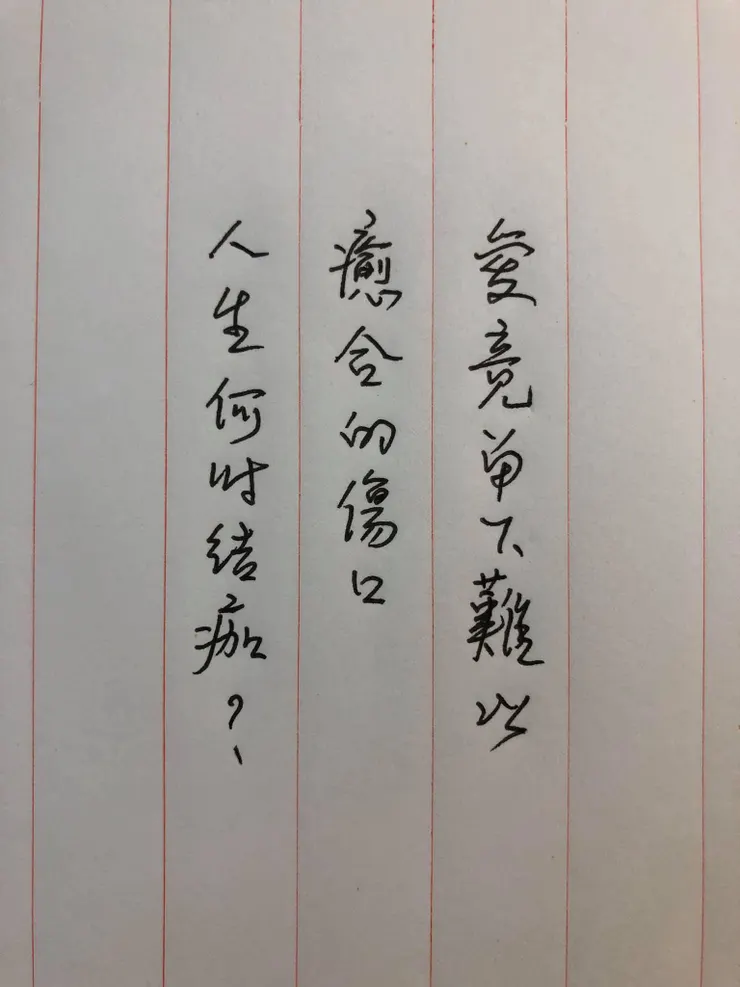 愛竟留下難以
癒合的傷口
人生何时結痂？